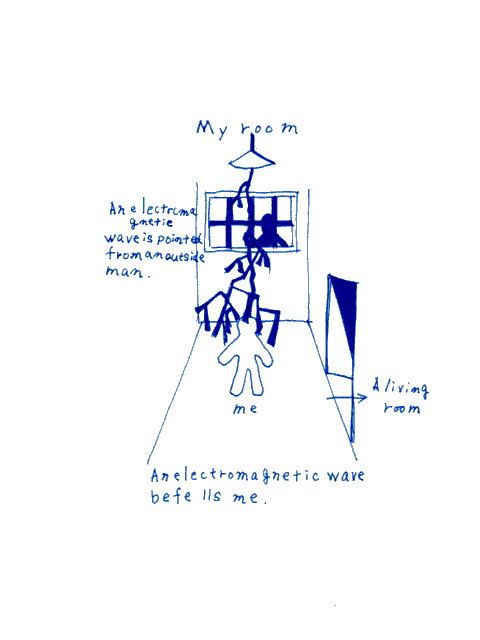 My room
An electroma
gnetic
wave is pointed
from an outside
man.
me
A living
room
An electromagnetic wave
befe lls me.